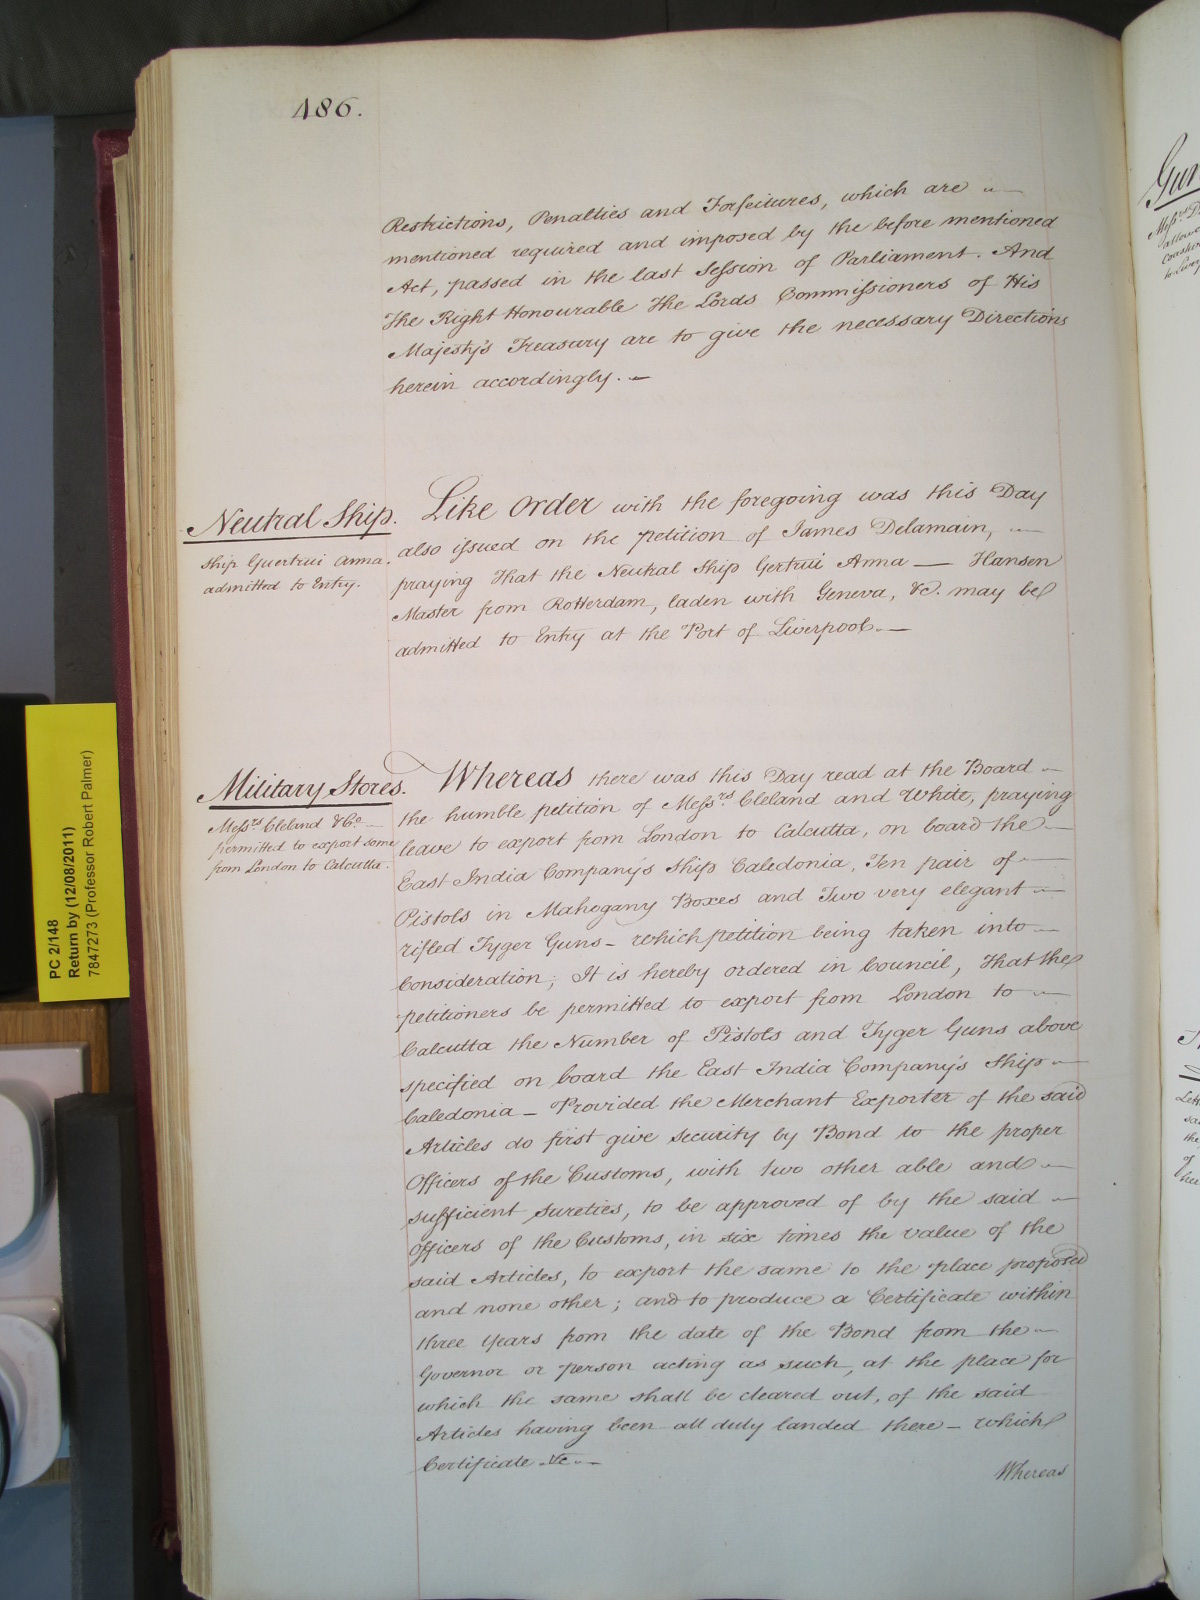 486.
Restrictions, Penalties and Forfeitures, which are
mentioned required and imposed by the before mentioned
Act, passed in the last Session of Parliament. And
The Right Honourable The Lords Commissioners of His
Majesty's Treasury are to give the necessary Directions
herein accordingly. —
Neutral Ship.
Ship Guertrui Anna
admitted to Entry.
Like Order with the foregoing was this Day
also issued on the petition of James Delamain,
praying That the Neutral Ship Gertrui Anna — Hansen
Master from Rotterdam, laden with Geneva, &c. may be
admitted to Entry at the Port of Liverpool. —
Military Stores.
Messrs Cleland & Co.
permitted to export some
from London to Calcutta.
Whereas there was this Day read at the Board
the humble petition of Messrs Cleland and White, praying
leave to export from London to Calcutta, on board the
East India Company's Ship Caledonia, Ten pair of
Pistols in Mahogany Boxes and Two very elegant
rifled Tyger Guns – which petition being taken into
Consideration; It is hereby ordered in Council, That the
petitioners be permitted to export from London to
Calcutta the Number of Pistols and Tyger Guns above
specified on board the East India Company's Ship
Caledonia – Provided the Merchant Exporter of the said
Articles do first give security by Bond to the proper
Officers of the Customs, with two other able and
sufficient sureties, to be approved of by the said
Officers of the Customs, in six times the value of the
said Articles, to export the same to the place proposed
and none other; and to produce a Certificate within
three Years from the date of the Bond from the
Governor or person acting as such, at the place for
which the same shall be cleared out, of the said
Articles having been all duly landed there – which
Certificate &c. —
Whereas
PC 2/148
Return by (12/08/2011)
7847273 (Professor Robert Palmer)